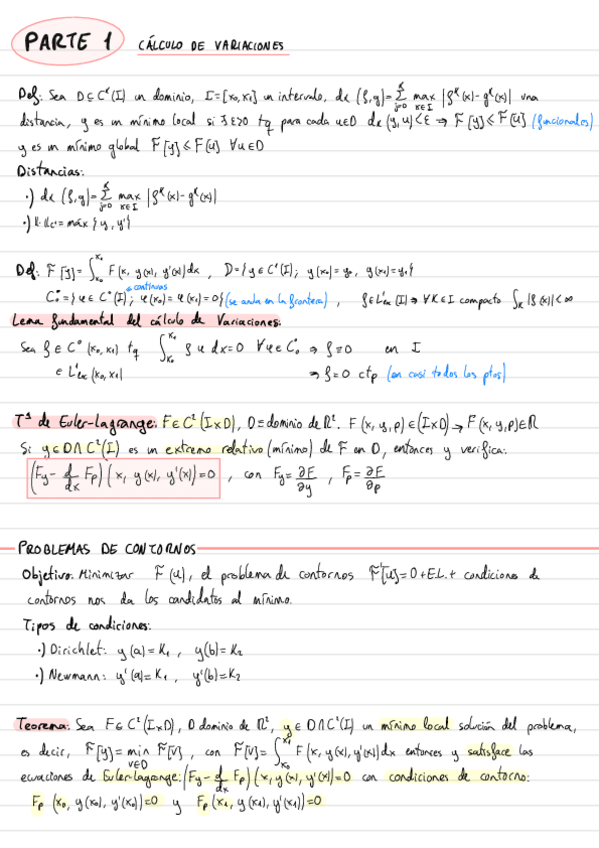 PARTE 1 CÁLCULO DE VARIACIONES
Def: Sea D⊆C^k(I) un dominio, I=[x₀,x₁] un intervalo, d_k(f,g)=∑_{j=0}^{k} max_{x∈I} |f^k(x)-g^k(x)| una
distancia, y es un mínimo local si ∃ε>0 tq para cada u∈D d_k(y,u)<ε ⇒ F[y]≤F[u] (funcionales)
y es un mínimo global F[y]≤F[u] ∀u∈D
Distancias:
·) d_k(f,g)=∑_{j=0}^{k} max_{x∈I} |f^k(x)-g^k(x)|
·) ||·||_{C¹}=máx{y, y'}
Def: F[y]=∫_{x₀}^{x₁} F(x, y(x), y'(x))dx, D={y∈C¹(I); y(x₀)=y₀, y(x₁)=y₁}
continuas
C₀^∞={u∈C^∞(I); u(x₀)=u(x₁)=0} (se anula en la frontera), f∈L¹ₗₒc(I) ⇒ ∀K∈I compacto ∫_K |f(x)|<∞
Lema fundamental del cálculo de Variaciones:
Sea f∈C⁰(x₀,x₁) tq ∫_{x₀}^{x₁} f u dx=0 ∀u∈C₀^∞ ⇒ f≡0 en I
∈ L¹ₗₒc(x₀,x₁) ⇒ f=0 ctp (en casi todos los ptos)
Tª de Euler-Lagrange: F∈C²(I×D), D=dominio de ℝ². F(x,y,p)∈(I×D)→F(x,y,p)∈ℝ
Si y∈D∩C²(I) es un extremo relativo (mínimo) de F en D, entonces y verifica:
(F_y - d/dx F_p)(x, y(x), y'(x))=0, con F_y=∂F/∂y, F_p=∂F/∂p
PROBLEMAS DE CONTORNOS
Objetivo: Minimizar F(u), el problema de contornos F'[u]=0+E.L.+ condiciones de
contornos nos da los candidatos al mínimo.
Tipos de condiciones:
·) Dirichlet: y(a)=K₁, y(b)=K₂
·) Newmann: y'(a)=K₁, y'(b)=K₂
Teorema: Sea F∈C²(I×D), D dominio de ℝ², y∈D∩C²(I) un mínimo local solución del problema,
es decir, F[y]=min_{v∈D} F[v], con F[v]=∫_{x₀}^{x₁} F(x, y(x), y'(x))dx entonces y satisface las
ecuaciones de Euler-Lagrange: (F_y - d/dx F_p)(x, y(x), y'(x))=0 con condiciones de contorno:
F_p(x₀, y(x₀), y'(x₀))=0 y F_p(x₁, y(x₁), y'(x₁))=0